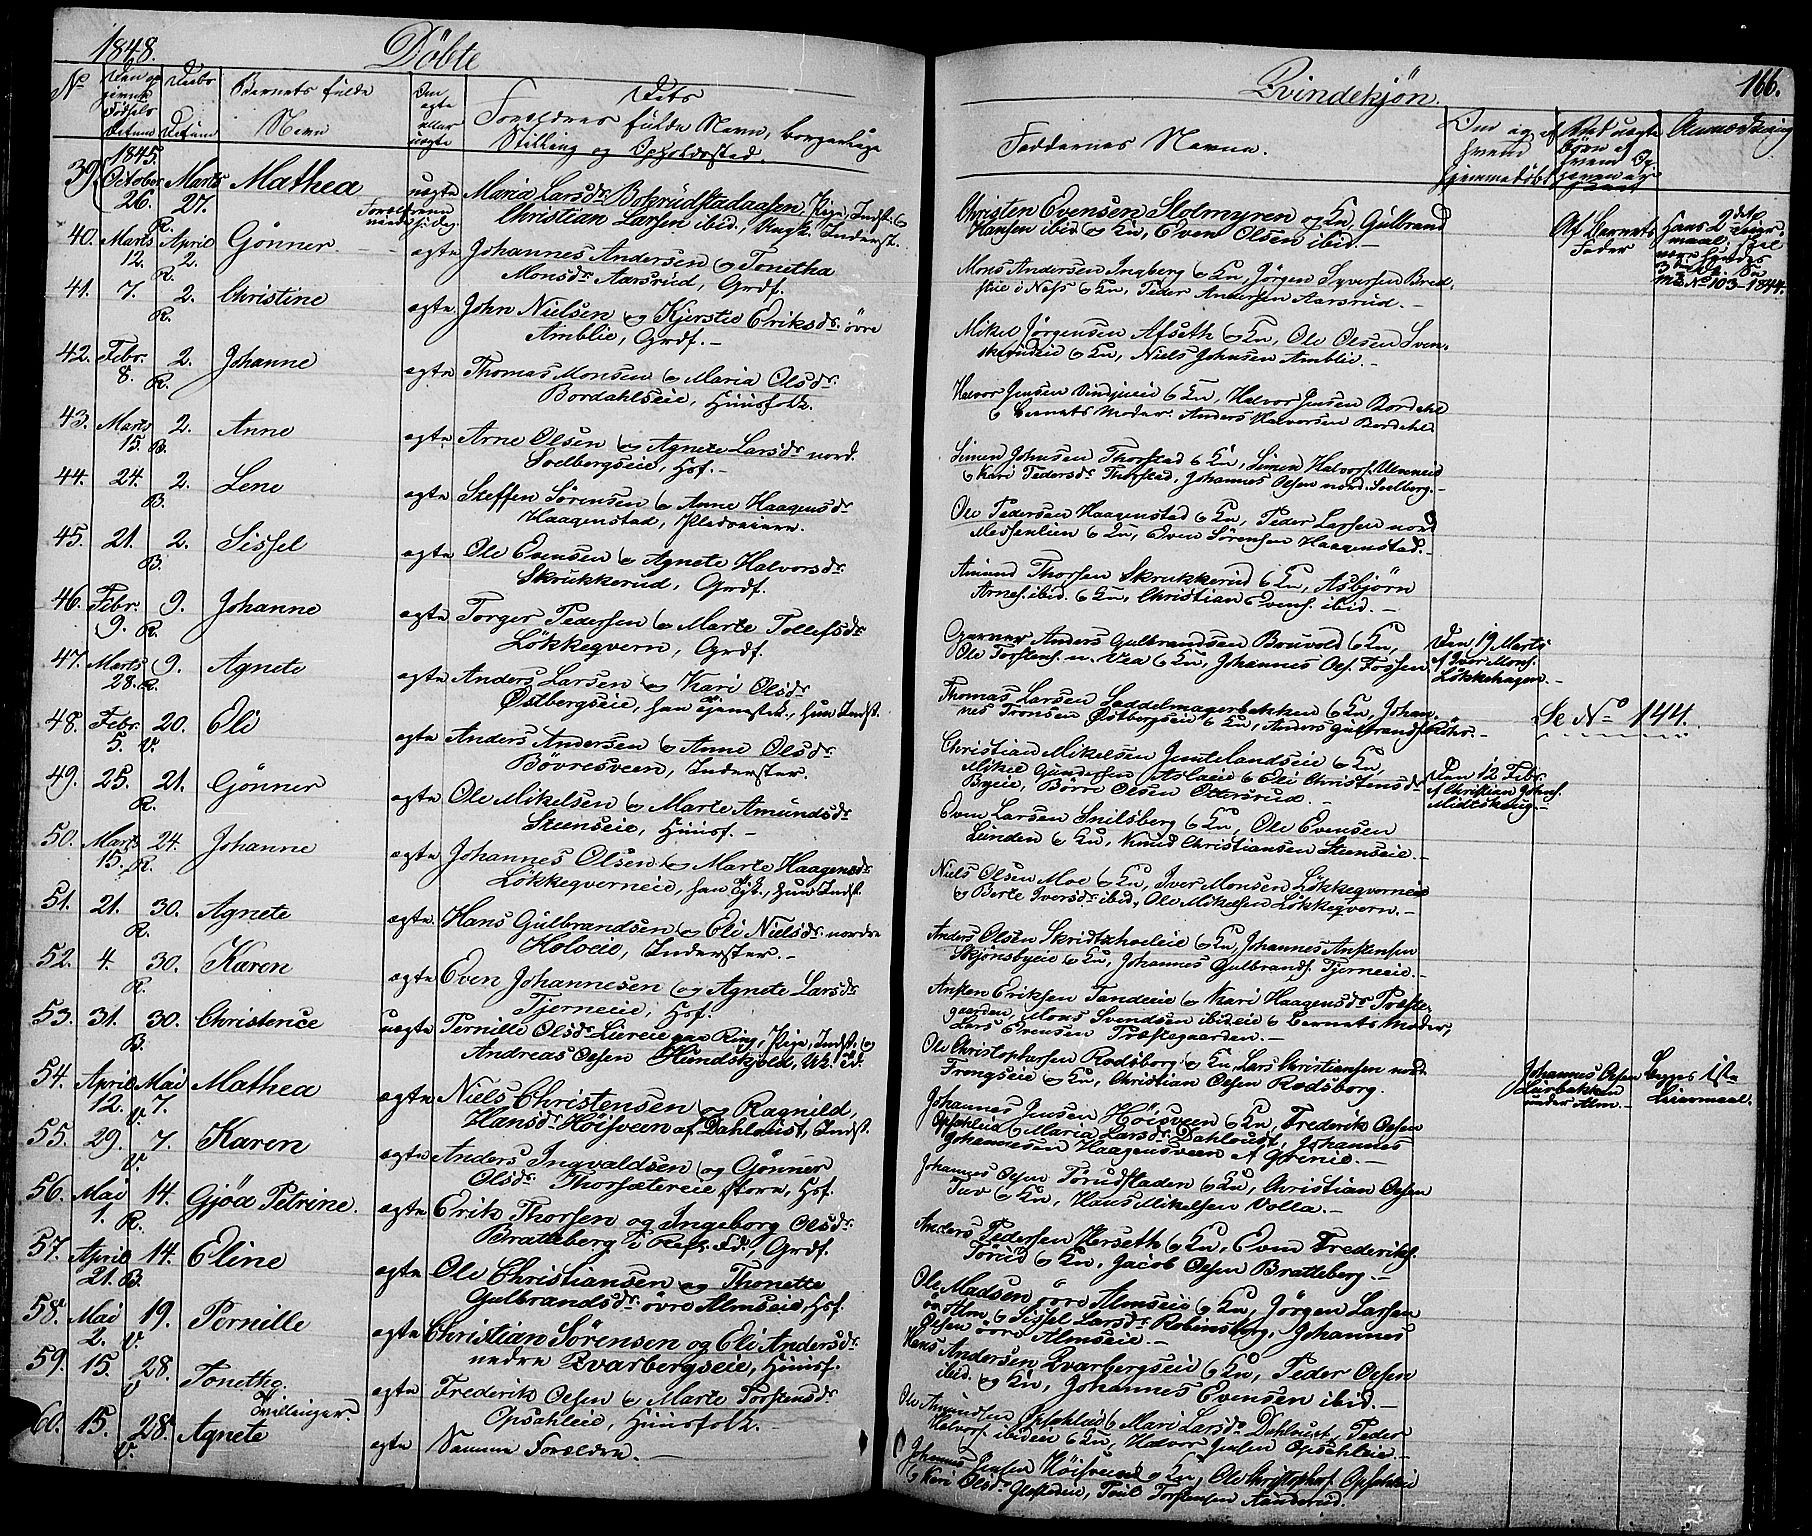 1848.
Döbte
Qvindekjön.
166.
No
Den og
Fødsels
Datum
Daabs
Datum
Barnets fulde
Navn
Om
ægte
eller
uægte
Dets
Forældres fulde Navn, borgerlige
Stilling og Opholdssted.
Faddernes Navne.
Om og af
hvem
hjemmedøbt
Anmærkning
39. 1845. October 26. Marts 27. R. Mathea uægte Maria Larsdr. Botsrüdstadaasen, Pige, Indst. &
Christian Larsen ibid., Ungk. Inderst.
Christen Evensen Stolmyren og Kn, Gulbrand
Hansen ibid & Kn, Even Olsen ibid.
Af Barnets
Fader
Hans 2det
Leiermaal
No 103-1844.
40. Marts 12. April 2. R. Gönner ægte Johannes Andersen & Tonetha
Monsdr. Aarsrud, Grdf.
Mons Andersen Ingberg & Kn, Jörgen Syversen
i Næss & Kn, Peder Andersen Aarsrud.
41. 7. 2. R. Christine ægte John Nielsen & Kjersti Eriksdr. övre
Amblie, Grdf.
Mikel Jörgensen Afseth & Kn, Ole Olsen Sven-
& Kn, Niels Johnsen Amblie.
42. Febr. 8. 2. R. Johanne ægte Thomas Monsen & Maria Olsdr.
Bordahlseie, Huusfolk.
Halvor Jensen & Kn, Halvor Jensen Bordahl
& Barnets Moder. Anders Halvorsen Bordahl
43. Marts 15. 2. B. Anne ægte Arne Olsen & Agnete Larsdr. nord.
Soelbergseie, Hsf.
Simen Johnsen Thorstad & Kn, Simen Halvors.
& Kari Pedersdr. Thorstad, Johannes Olsen nord. Soelberg.
44. 24. 2. B. Lene ægte Steffen Sörensen & Anne Haagensdr.
Haagenstad,
Ole Pedersen Haagenstad & Kn, Peder Larsen nord
Messenlien & Kn, Even Sörensen Haagenstad.
45. 21. 2. B. Sissel ægte Ole Evensen & Agnete Halvorsdr.
Skrukkerud, Grdf.
Amund Thorsen Skrukkerud & Kn, Asbjörn
Arnes. ibid. & Kn, Christian Evens. ibid.
46. Febr. 9. 9. R. Johanne ægte Torger Pedersen & Marte Tollefsdr.
Lökkeqvern, Grdf.
Garver Anders Gulbrandsen Bouvold & Kn,
Ole Torstens. n. Vea & Kn, Johannes Ols. Frossen
Den 19 Marts
af Iver Mons.
Lökkehagen.
47. Marts 28. 9. R. Agnete ægte Anders Larsen & Kari Olsdr.
Østbergseie, han Tjenestek., hun Indst.
Thomas Larsen Saddelmagerbakken & Kn, Johan-
nes Tronsen Østbergseie & Kn, Anders Gulbrands.
Se No 144.
48. Febr. 5. 20. V. Eli ægte Anders Andersen & Anne Olsdr.
Bövresveen, Inderster.
Christian Mikelsen Juntelandseie & Kn,
Mikel Gundersen Aslaeie & Eli Christensdr.
Byeie, Börre Olsen Ottersrud.
Den 12 Febr.
af Christian Johns.
Midtskoug.
49. 25. 21. R. Gönner ægte Ole Mikelsen & Marte Amundsdr.
Steenseie, Huusf.
Even Larsen Snilsberg & Kn, Ole Evensen
Lunden & Kn, Knud Christiansen Steenseie.
50. Marts 15. 24. R. Johanne ægte Johannes Olsen & Marte Haagensdr.
Lökkeqverneie, han Tjst., hun Indst.
Niels Olsen Moe & Kn, Iver Monsen Lökkeqverneie
& Berte Iversdr. ibid, Ole Mikelsen Lökkeqvern.
51. 21. 30. R. Agnete ægte Hans Gulbrandsen & Eli Nielsdr. nordre
Holveie, Inderster.
Anders Olsen Skridtshoeleie & Kn, Johannes Anstensen
Skjönsbyeie & Kn, Johannes Gulbrands. Tjerneeie.
52. 4. 30. R. Karen ægte Even Johannesen & Agnete Larsdr.
Tjerneeie, Hsf.
Ansten Eriksen Tandeeie & Kari Haagensdr. Præste-
gaarden, Mons Svendsen ibideie & Barnets Moder,
Lars Evensen Præstegaarden.
53. 31. 30. B. Christence uægte Pernille Olsdr. Lureie paa Ring, Pige, Indst. &
Andreas Olsen Hundskjold, Uk. ibid.
Ole Christophersen Rodsborg & Kn, Lars Christiansen nord.
Frengseie & Kn, Christian Olsen Rodsborg.
Johannes Olsen
Leerbakken
under Alm.
Begges 1ste
Leiermaal.
54. April 12. Mai 7. V. Mathea ægte Niels Christensen & Ragnild,
Hansdr. Höisveen af Dahlqvist, Indst.
Johannes Jensen Höisveen & Kn, Frederik Olsen
Opsahleie & Maria Larsdr. Dahlqvist, Johannes
Johannesen Haagensveen af Grinie.
55. 29. 7. V. Karen ægte Anders Ingvaldsen & Gönner
Olsdr. Thorsætereie store, Hsf.
Johannes Olsen Törudstaden & Kn, Christian Olsen
Tuv & Kn, Hans Mikelsen Volla.
56. Mai 1. 14. R. Gjöa Petrine. ægte Erik Thorsen og Ingeborg Olsdr.
Bratteberg i R. Fd., Grdf.
Anders Pedersen Herseth & Kn, Even Frederiks.
Törud & Kn, Jacob Olsen Bratteberg.
57. April 21. 14. B. Eline ægte Ole Christiansen og Thonette
Gulbrandsdr. övre Almseie, Hsf.
Ole Madsen övre Almseie & Kn, Jörgen Larsen
ö. Alm & Sissel Larsdr. Robinsborg, Johannes
Olsen övre Almseie.
58. Mai 2. 19. V. Pernille ægte Christian Sörensen og Eli Andersdr.
nedre Qvarbergseie, Huusf.
Hans Andersen Qvarbergseie & Kn, Peder Olsen
ibid. & Kn, Johannes Evensen ibid.
59. 15. 28. V. Tonethe
Tvillinger.
ægte Frederik Olsen & Marte Torstensdr.
Opsahleie, Huusfolk.
Ole Amundsen Opsahleie & Mari Larsdr. Dahlqvist, Peder
Halvors. ibideie & Kn, Halvor Jensen Opsahleie.
60. 15. 28. V. Agnete ægte Samme Forældre.
Johannes Jensen Höisveen & Kn, Ole Christophers. Opsahleie
& Kari Olsdr. Glostadeie, Poul Torstensen Aanderud.